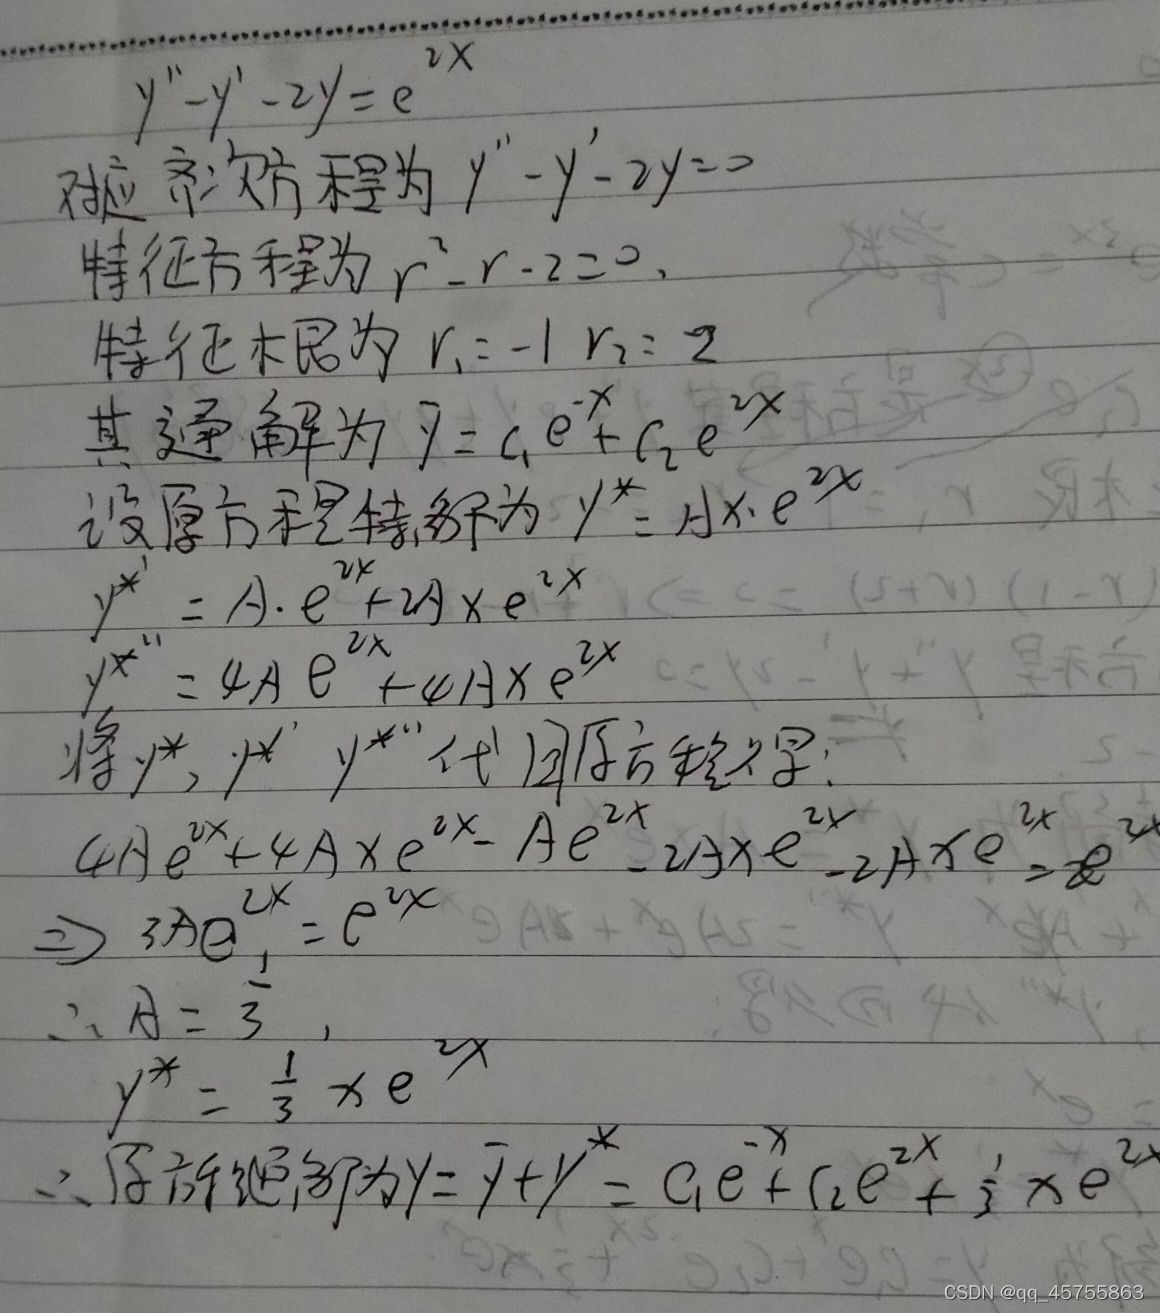 y''-y'-2y=e^{2x}
对应齐次方程为 y''-y'-2y=0
特征方程为 r^2-r-2=0,
特征根为 r_1=-1 r_2=2
其通解为 ȳ=C_1e^{-x}+C_2e^{2x}
设原方程特解为 y*=Ax·e^{2x}
y*'=A·e^{2x}+2Axe^{2x}
y*''=4Ae^{2x}+4Axe^{2x}
将y*, y*' y*''代回原方程得:
4Ae^{2x}+4Axe^{2x}-Ae^{2x}-2Axe^{2x}-2Axe^{2x}=e^{2x}
⇒ 3Ae^{2x}=e^{2x}
∴ A=1/3,
y*=1/3 xe^{2x}
∴原方程通解为y=ȳ+y*=C_1e^{-x}+C_2e^{2x}+1/3 xe^{2x}
CSDN @qq_45755863